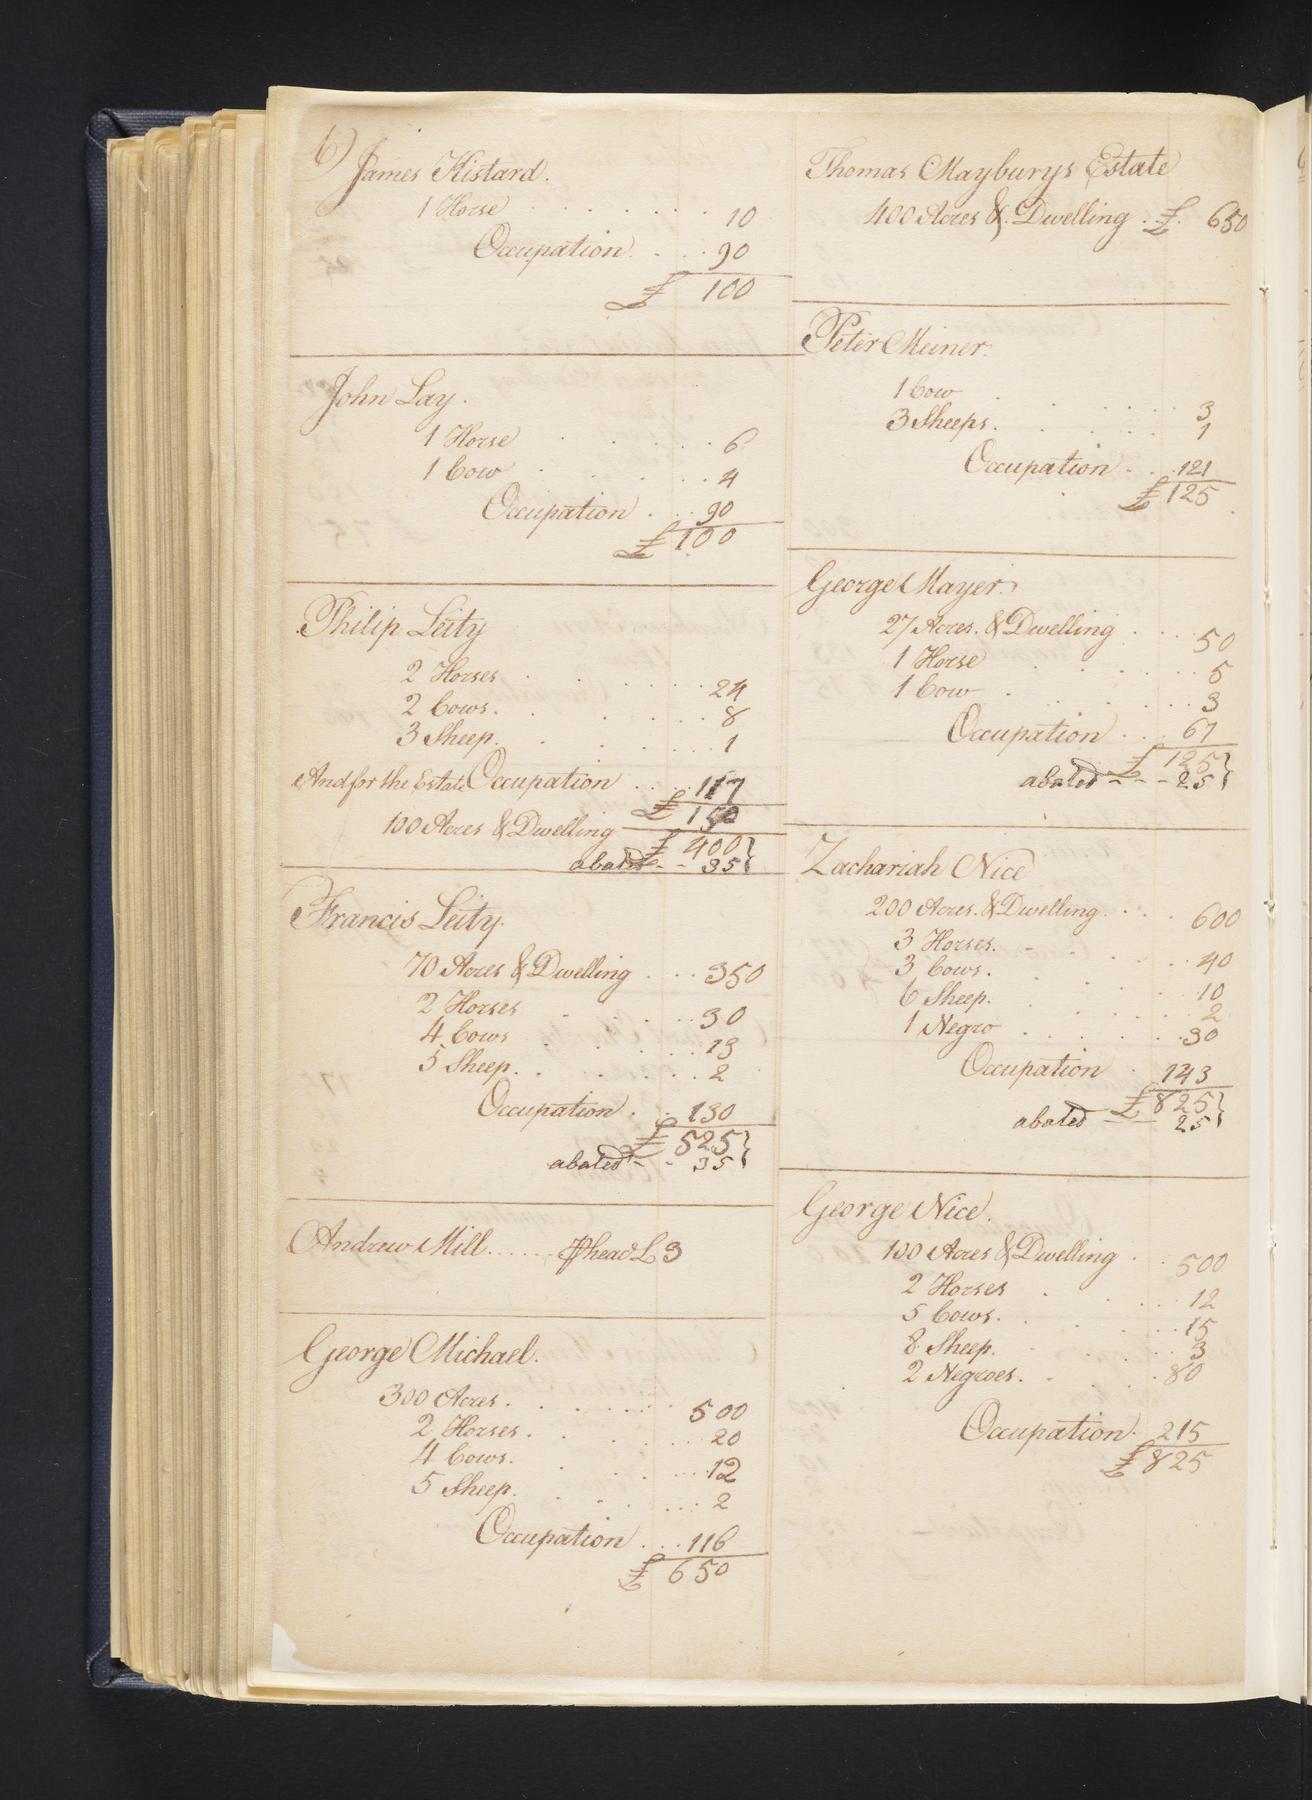 6)
James Kistard.
1 Horse . . . . . . . 10
Occupation . . . . 90
£ 100
John Lay.
1 Horse . . . . . 6
1 Cow . . . . . 4
Occupation . . . 90
£ 100
Philip Leity
2 Horses . . . . . . 24
2 Cows . . . . . . 8
3 Sheep . . . . . . 1
And for the Estate Occupation . . . 117
£ 150
100 Acres & Dwelling
£ 400}
abated - - 35}
Francis Leity.
70 Acres & Dwelling . . . 350
2 Horses . . . . . 30
4 Cows . . . . . 13
5 Sheep . . . . . . 2
Occupation . . . 130
£ 525}
abated - - 35}
Andrew Mill . . . . . . head £ 3
George Michael.
300 Acres . . . . . . . 500
2 Horses . . . . . . 20
4 Cows . . . . . . 12
5 Sheep . . . . . . 2
Occupation . . . 116
£ 650
Thomas Mayburys Estate
400 Acres & Dwelling . £ . 650
Peter Meiner.
1 Cow . . . . . . 3
3 Sheeps . . . . . . 1
Occupation . . . 121
£ 125
George Mayer.
27 Acres & Dwelling . . . . 50
1 Horse . . . . . . 5
1 Cow . . . . . . 3
Occupation . . . 67
£ 125}
abated - - - 25}
Zachariah Nice
200 Acres & Dwelling . . . . 600
3 Horses . . . . . 40
3 Cows . . . . . 10
6 Sheep . . . . . 2
1 Negro . . . . . 30
Occupation . 143
£ 825}
abated - - 25}
George Nice.
100 Acres & Dwelling . . 500
2 Horses . . . . . 12
5 Cows . . . . . . 15
8 Sheep . . . . . . 3
2 Negroes . . . . 80
Occupation . 215
£ 825